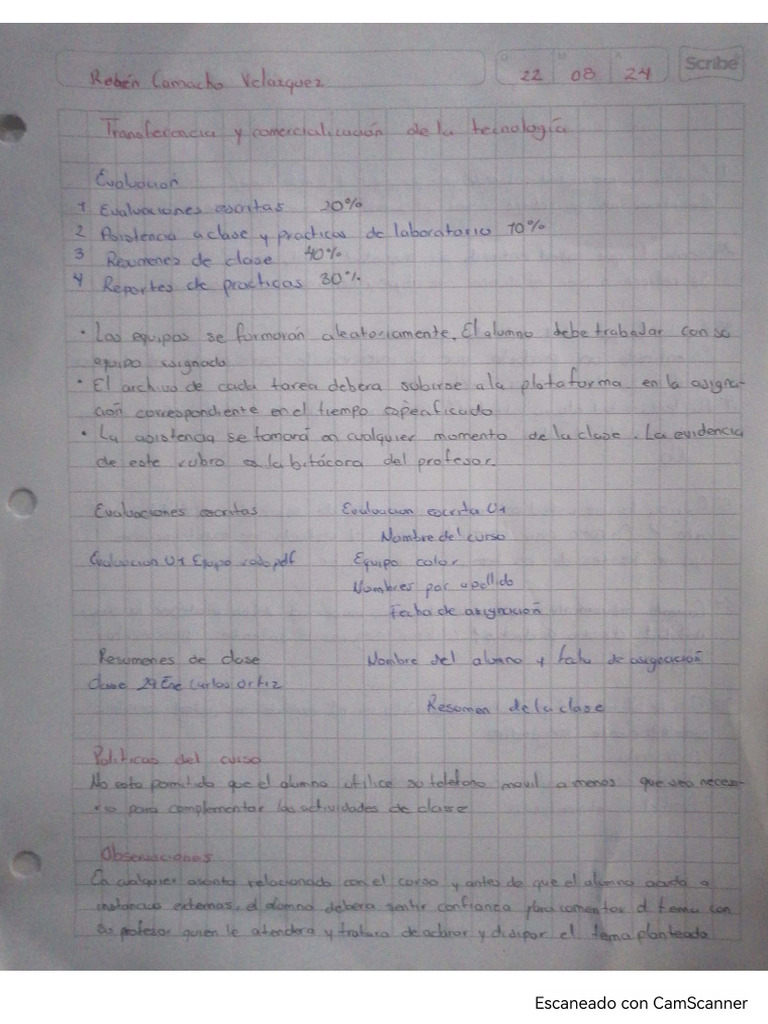 Scribe
Rubén Camacho Velazquez 22 08 24
Transferencia y comercialización de la tecnología
Evaluacion
1 Evaluaciones escritas 20%
2 Asistencia a clase y practicas de laboratorio 10%
3 Resumenes de clase 40%
4 Reportes de practicas 30%
• Los equipos se formarán aleatoriamente. El alumno debe trabajar con su
equipo asignado
• El archivo de cada tarea debera subirse a la plataforma en la asigna-
ción correspondiente en el tiempo especificado
• La asistencia se tomará en cualquier momento de la clase. La evidencia
de este rubro es la bitácora del profesor.
Evaluaciones escritas Evaluacion escrita U1
Nombre del curso
Evaluacion U1 Equipo rojo.pdf Equipo color
Nombres por apellido
Fecha de asignación
Resumenes de clase Nombre del alumno y fecha de asignación
Clase 29 Ene Carlos Ortiz
Resumen de la clase
Politicas del curso
No esta permitido que el alumno utilice su telefono movil a menos que sea neces-
rio para complementar las actividades de clase
Observaciones
En cualquier asunto relacionado con el curso y antes de que el alumno acuda a
instancias externas, el alumno debera sentir confianza para comentar el tema con
su profesor quien le atendera y tratara de aclarar y disipar el tema planteado
Escaneado con CamScanner